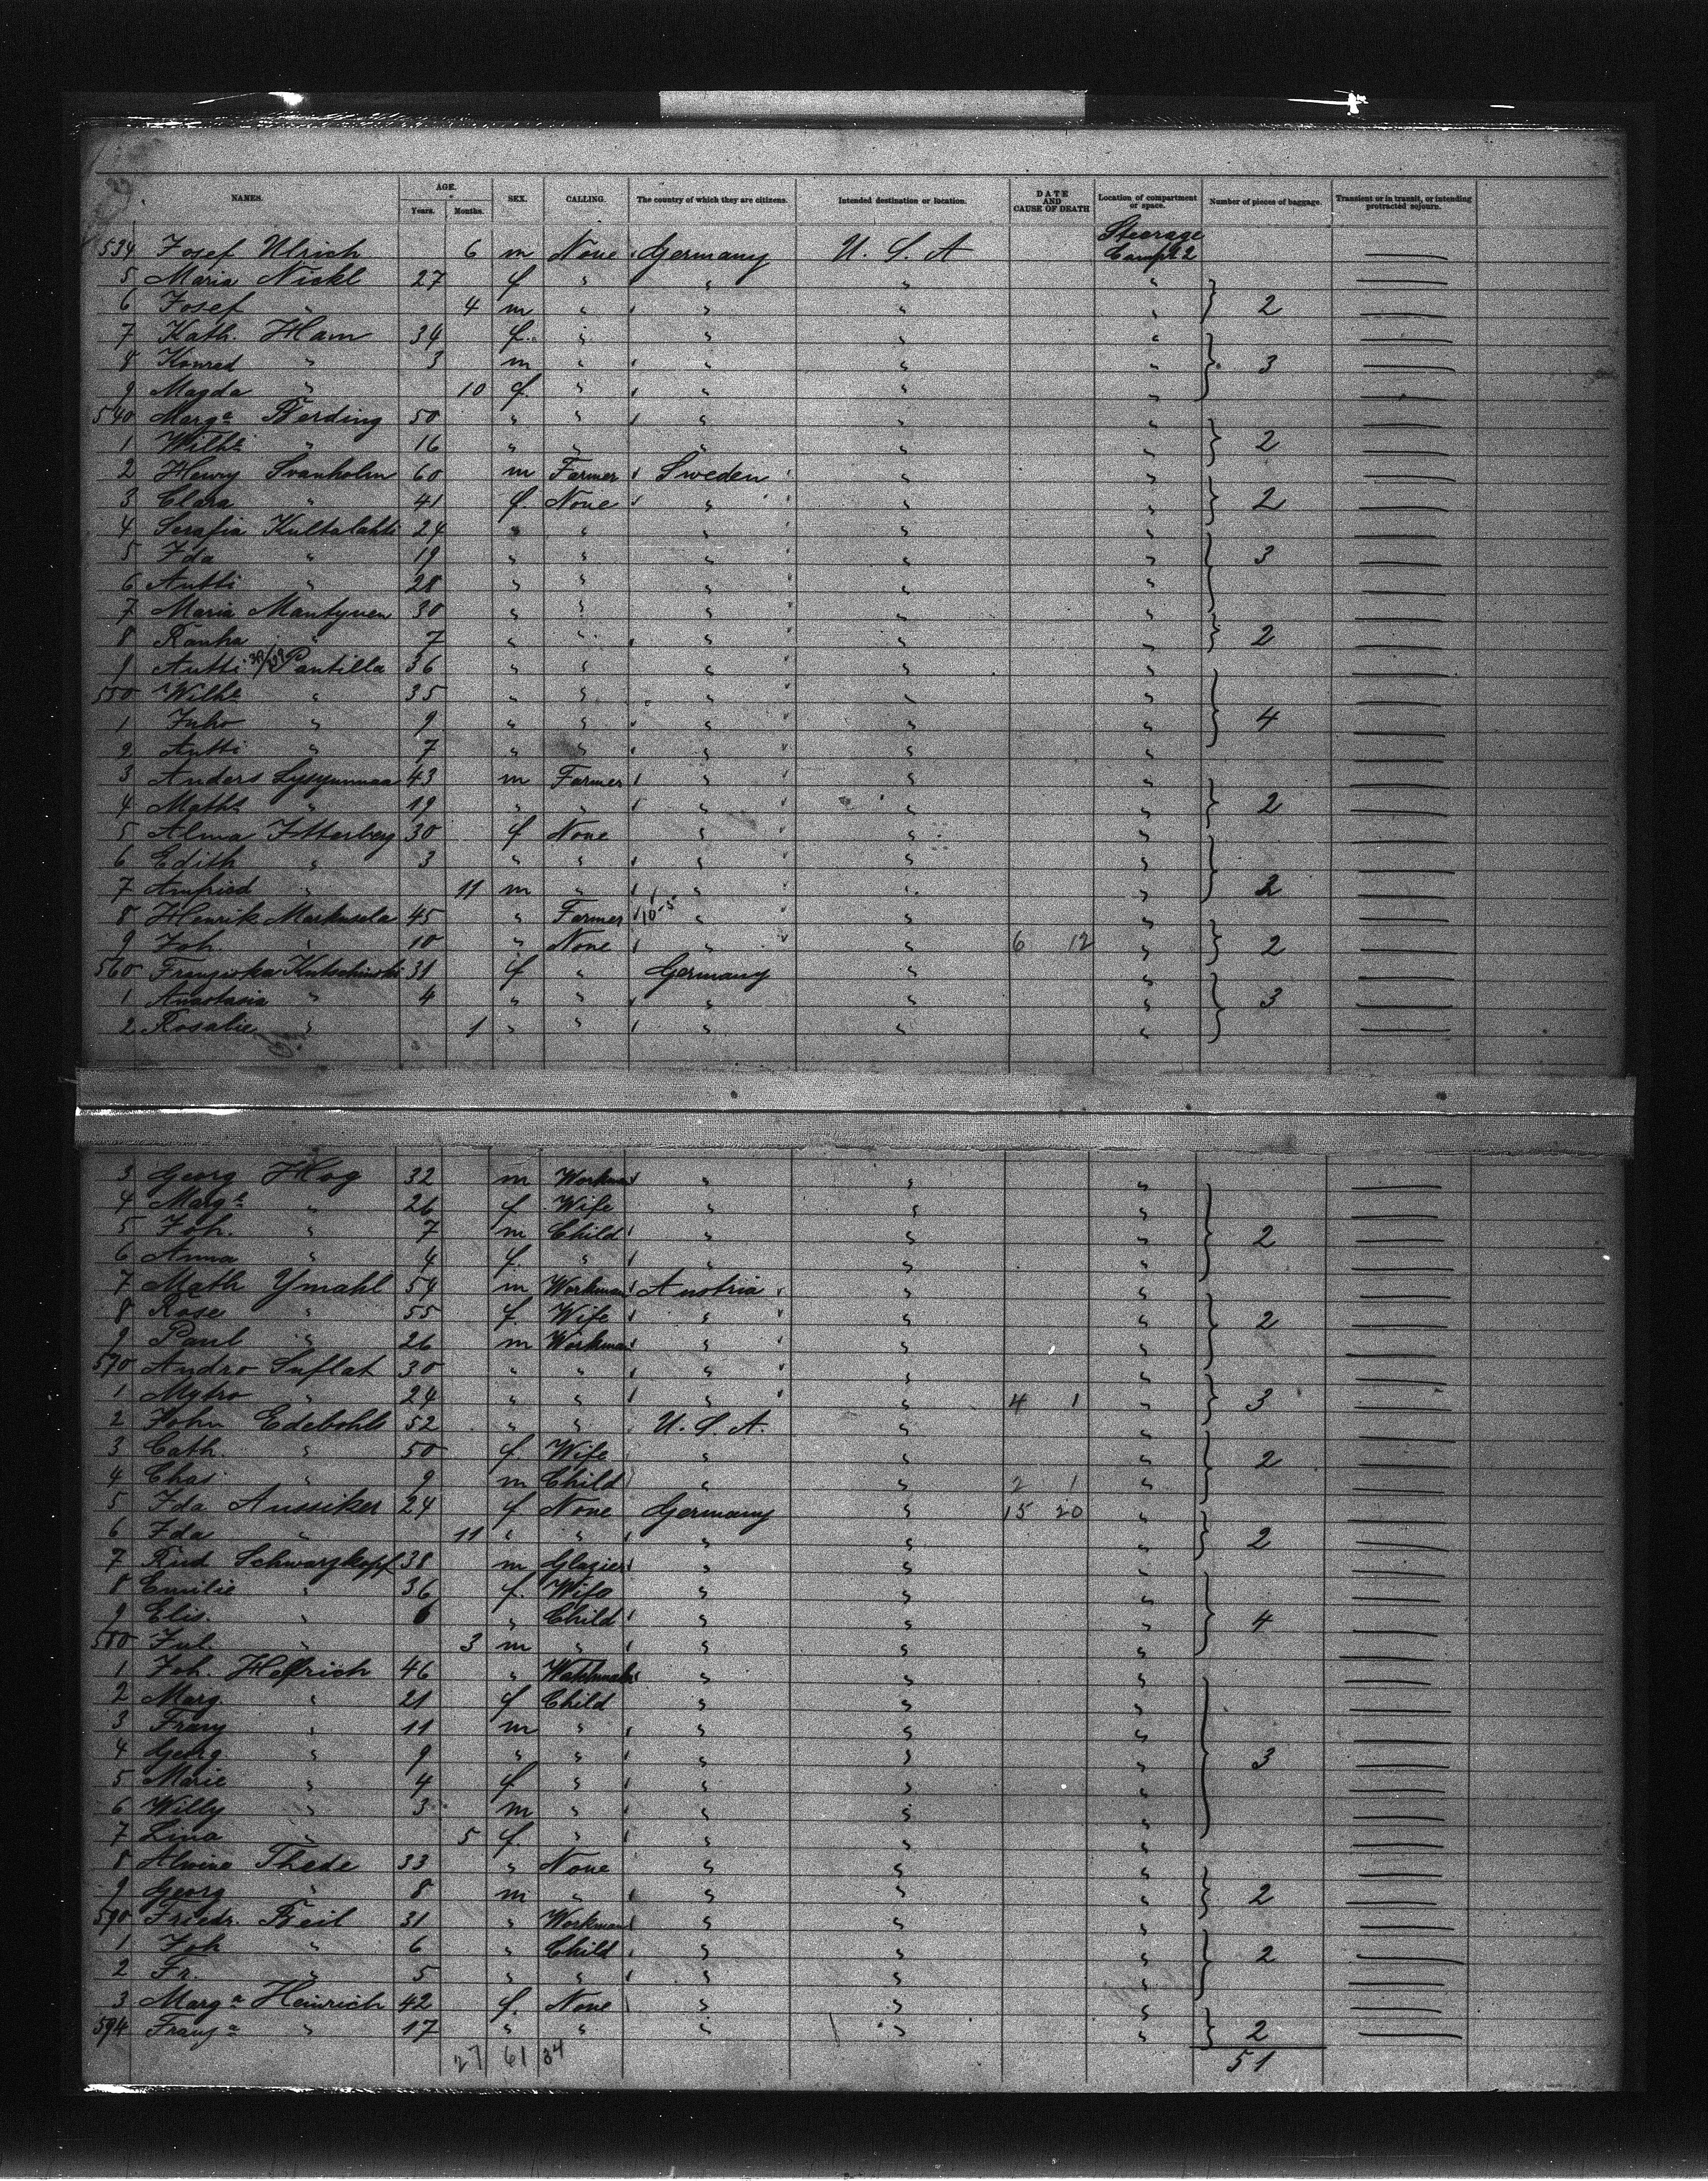 NAMES. AGE. Years. Months. SEX. CALLING. The country of which they are citizens. Intended destination or location. DATE AND CAUSE OF DEATH Location of compartment or space. Number of pieces of baggage. Transient or in transit, or intending protracted sojourn.
534 Josef Ulrich 6 m None Germany U. S. A Steerage Compt 2
5 Maria Nickl 27 f " " " "
6 Josef " 4 m " " " " 2
7 Kath. Ham 34 f. " " " "
8 Konrad " 3 m " " " " 3
9 Magda " 10 f. " " " "
540 Marga Berding 50 " " " " "
1 Wilhe " 16 " " " " " 2
2 Henry Svanholm 60 m Farmer Sweden " "
3 Clara " 41 f. None " " " 2
4 Serafia Kultalahti 24 " " " " "
5 Ida " 19 " " " " " 3
6 Antti " 28 " " " " "
7 Maria Mantynen 30 " " " " "
8 Rauha " 7 " " " " " 2
9 Antti Pantilla 36 " " " " "
550 Wilhe " 35 " " " " "
1 Juho " 9 " " " " " 4
2 Antti " 7 " " " " "
3 Anders 43 m Farmer " " "
4 Maths " 19 " " " " " 2
5 Alma Itterberg 30 f None " " "
6 Edith " 3 " " " " "
7 Amfried " 11 m " " " " 2
8 Henrik Markusela 45 " Farmer 10-5 " " "
9 Joh. " 10 " None " " 6 12 " 2
560 Franziska Kutschinski 31 f " Germany " "
1 Anastasia " 4 " " " " " 3
2 Rosalie " 1 " " " " "
3 Georg Hog 32 m Workman " " "
4 Marga " 26 f Wife " " "
5 Joh. " 7 m Child " " " 2
6 Anna " 4 f. " " " "
7 Math Ymahl 54 m Workman Austria " "
8 Rose " 55 f. Wife " " " 2
9 Paul " 26 m Workman " " "
570 Andro Suflat 30 " " " " "
1 Mytro " 24 " " " " 4 1 " 3
2 John Edebohls 52 " " U. S. A. " "
3 Cath. " 50 f. Wife " " " 2
4 Chas " 9 m Child " " 2 1 "
5 Ida Aussiker 24 f. None Germany " 15 20 "
6 Ida " 11 " " " " " 2
7 Rud Schwarzkopf 38 m Glazier " " "
8 Emilie " 36 f. Wife " " "
9 Elis. " 6 " Child " " " 4
580 Jul. " 3 m " " " "
1 Joh. Helfrich 46 " Watchmaker " " "
2 Marg. " 21 f Child " " "
3 Franz " 11 m " " " "
4 Georg " 9 " " " " " 3
5 Marie " 4 f " " " "
6 Willy " 3 m " " " "
7 Lina " 5 f. " " " "
8 Alwine Thede 33 " None " " "
9 Georg " 8 m " " " " 2
590 Friedr. Beil 31 " Workman " " "
1 Joh " 6 " Child " " " 2
2 Fr. " 5 " " " " "
3 Marga Heinrich 42 f. None " " "
594 Franza " 17 " " " " " 2
27 61 34 51